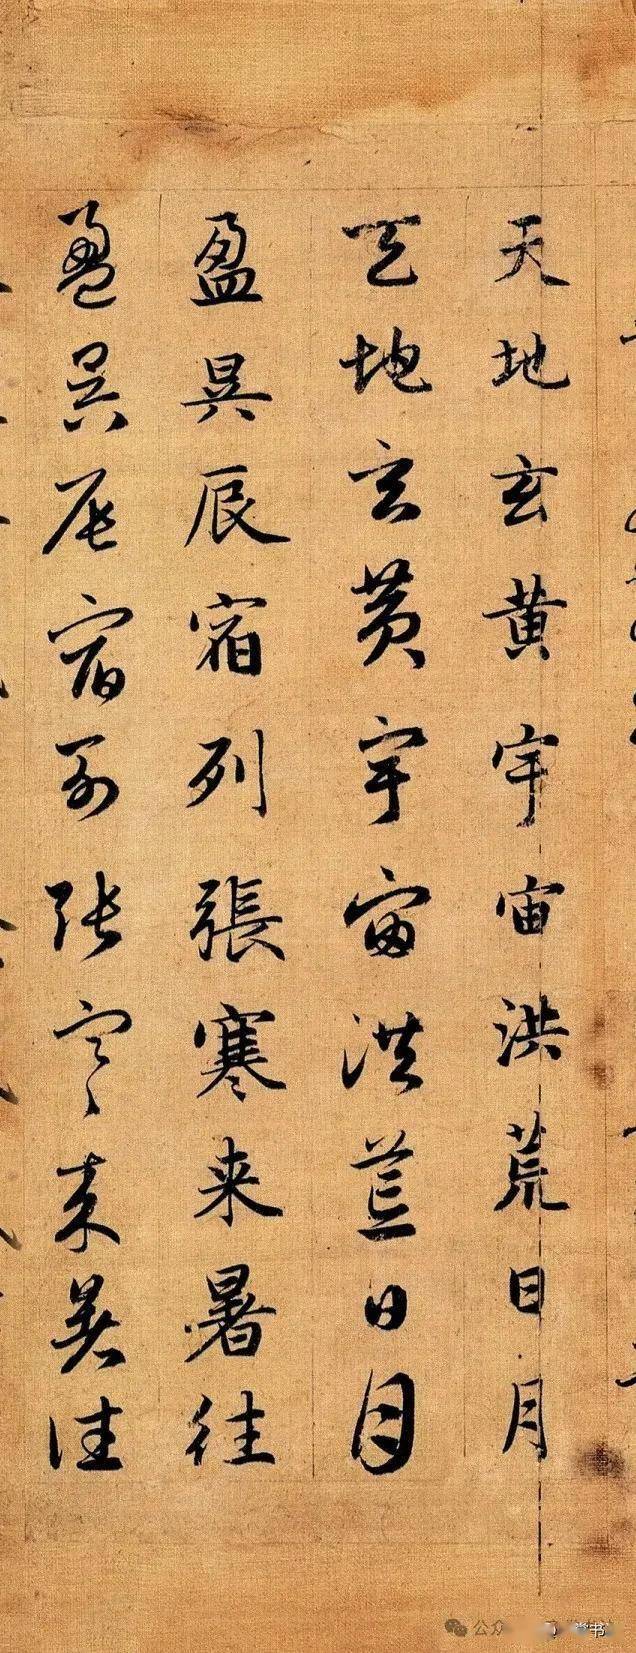 天地玄黄宇宙洪荒日月
天地玄黄宇宙洪荒日月
盈昃辰宿列張寒来暑往
盈昃辰宿列张寒来暑往
公众
书